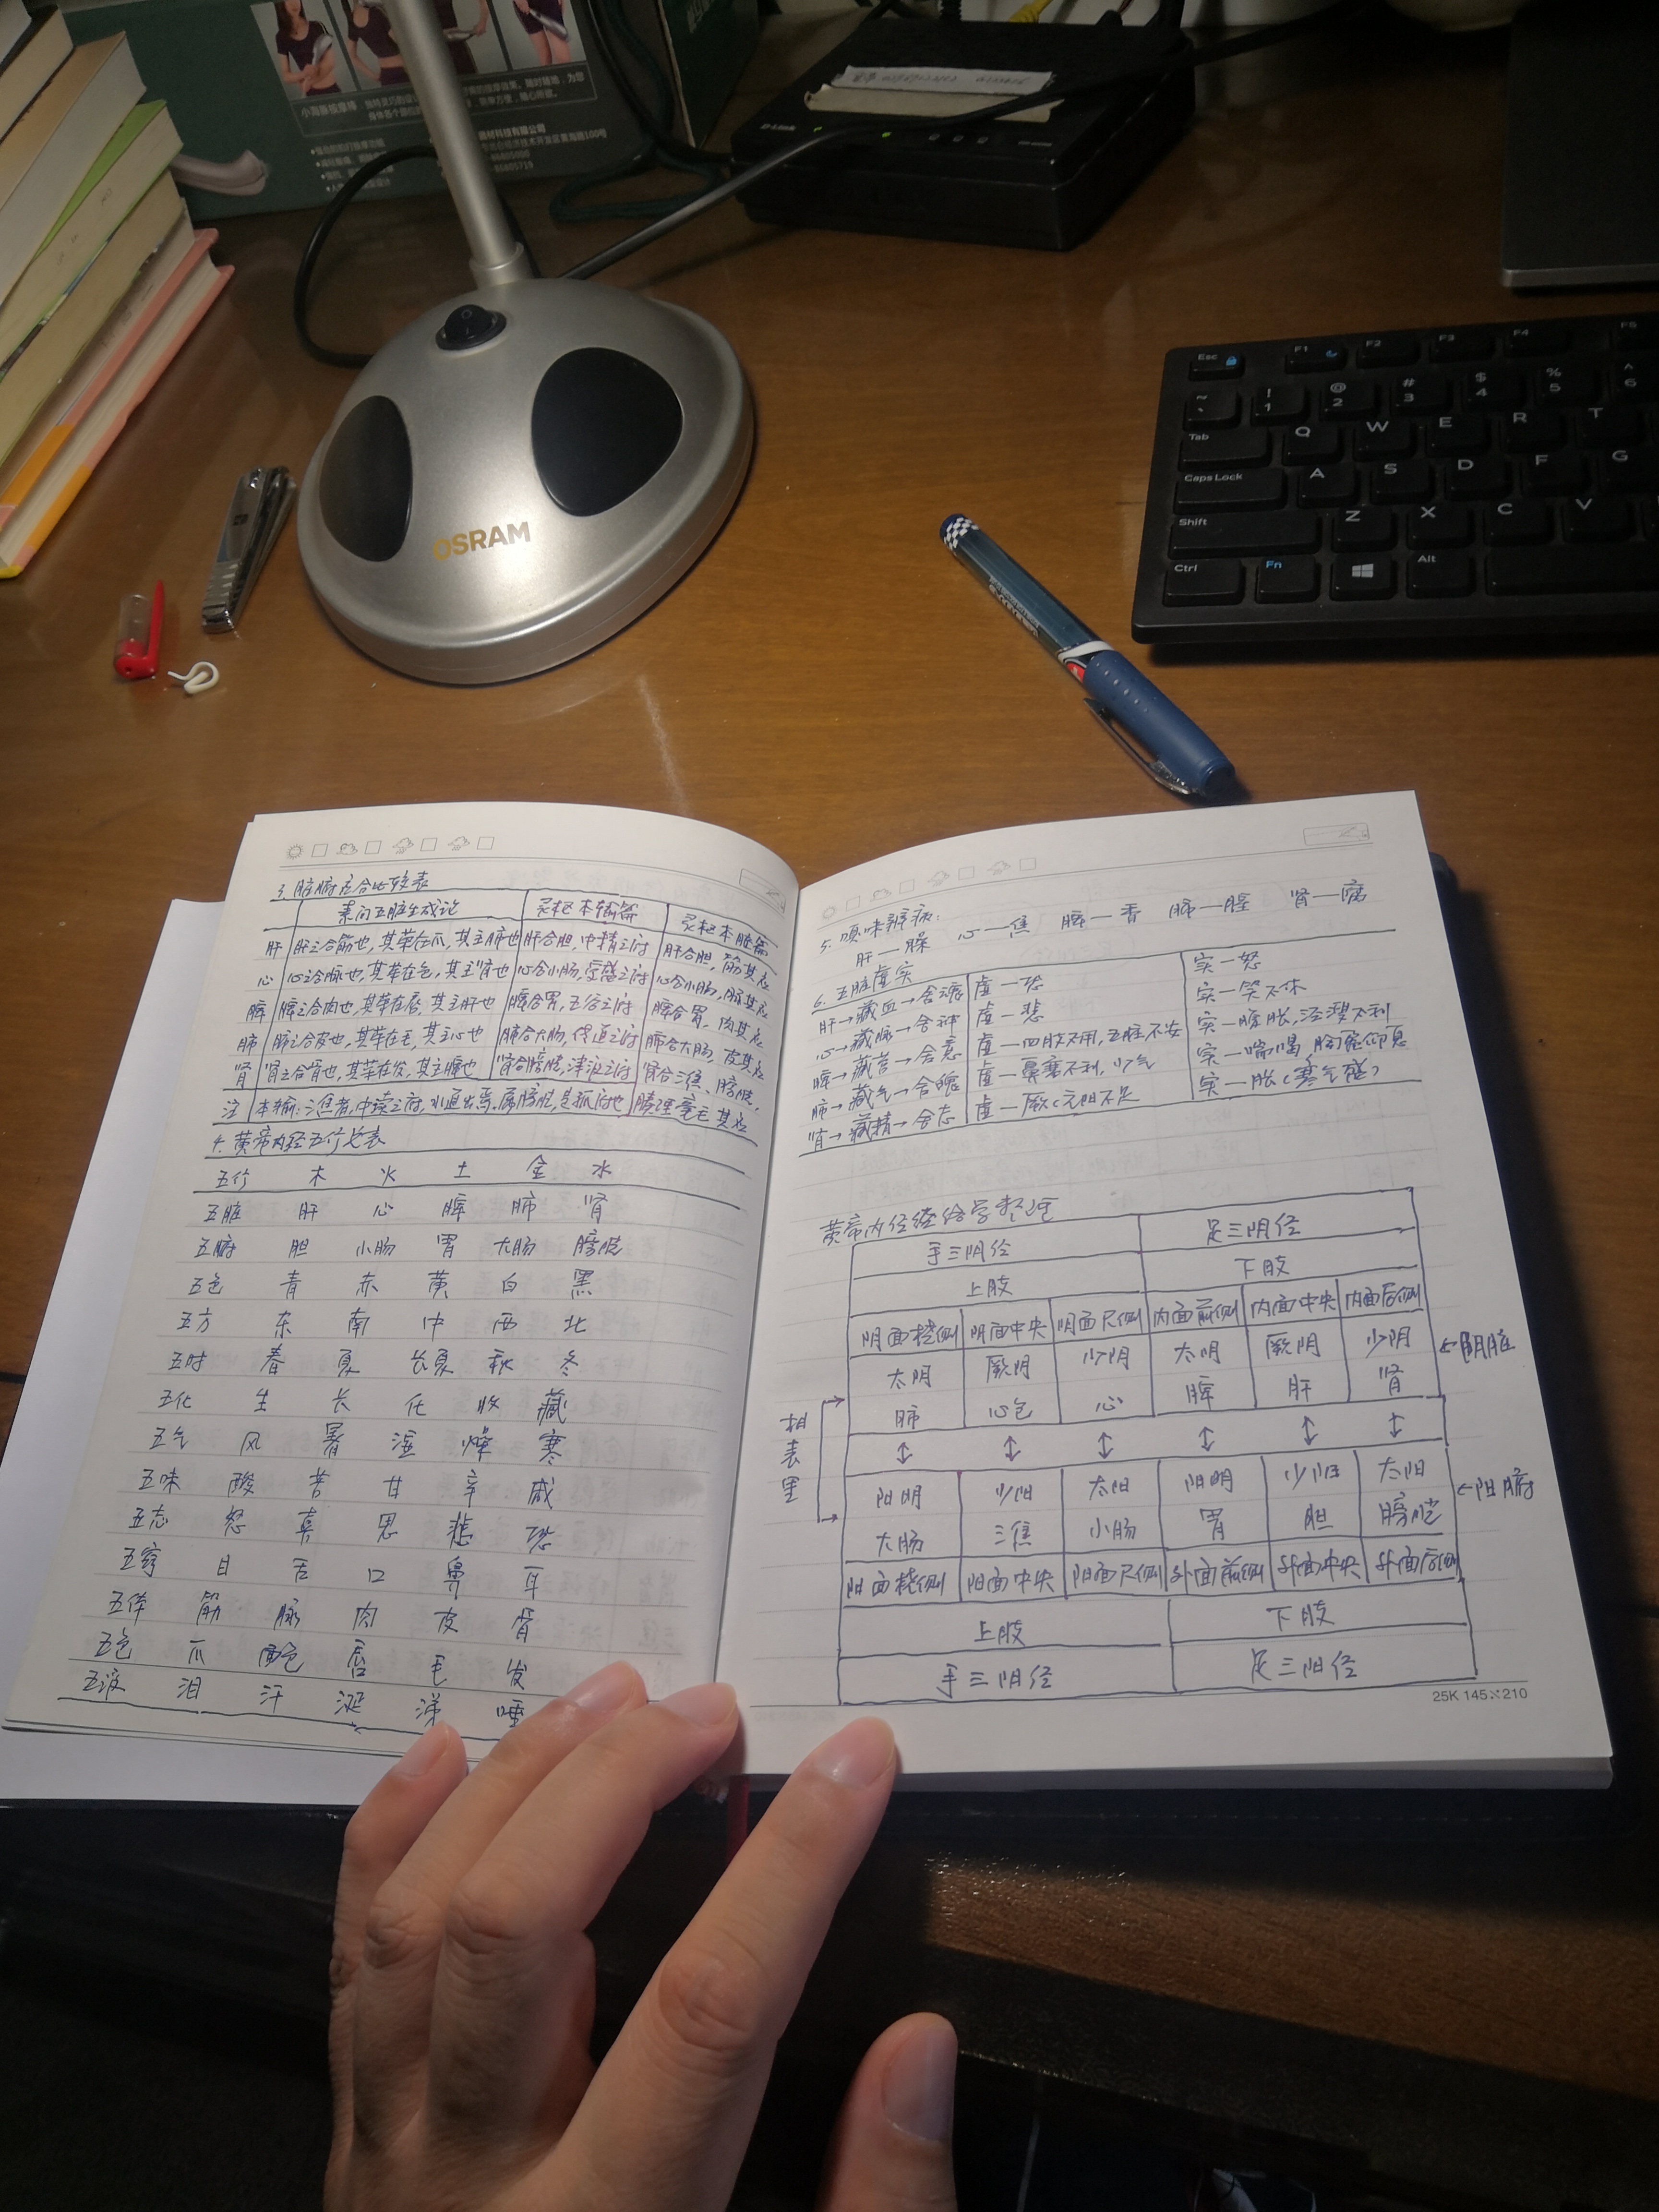 小海豚按摩棒
身体各个部位的
随时随地,为您
按摩方便,随心所欲。
器材科技有限公司
经济技术开发区黄海路100号
-86805000
-86805719
D-Link
OSRAM
Esc F1 F2 F3 F4 F5
~ ` ! 1 @ 2 # 3 $ 4 % 5 ^ 6
Tab Q W E R T
Caps Lock A S D F G
Shift Z X C V
Ctrl Fn Alt
3. 脏腑应合比较表
素问五脏生成论 灵枢本输篇 灵枢本脏篇
肝 肝之合筋也,其荣在爪,其主肺也 肝合胆,中精之府 肝合胆,筋其应
心 心之合脉也,其荣在色,其主肾也 心合小肠,受盛之府 心合小肠,脉其应
脾 脾之合肉也,其荣在唇,其主肝也 脾合胃,五谷之府 脾合胃,肉其应
肺 肺之合皮也,其荣在毛,其主心也 肺合大肠,传道之府 肺合大肠,皮其应
肾 肾之合骨也,其荣在发,其主脾也 肾合膀胱,津液之府 肾合三焦、膀胱,
注 本输:三焦者,中渎之府,水道出焉,属膀胱,是孤府也 腠理毫毛其应
4. 黄帝内经五行总表
五行 木 火 土 金 水
五脏 肝 心 脾 肺 肾
五腑 胆 小肠 胃 大肠 膀胱
五色 青 赤 黄 白 黑
五方 东 南 中 西 北
五时 春 夏 长夏 秋 冬
五化 生 长 化 收 藏
五气 风 暑 湿 燥 寒
五味 酸 苦 甘 辛 咸
五志 怒 喜 思 悲 恐
五窍 目 舌 口 鼻 耳
五体 筋 脉 肉 皮 骨
五色 爪 面色 唇 毛 发
五液 泪 汗 涎 涕 唾
5. 嗅味辨病:
肝—臊 心—焦 脾—香 肺—腥 肾—腐
6. 五脏虚实
肝→藏血→舍魂 虚—恐 实—怒
心→藏脉→舍神 虚—悲 实—笑不休
脾→藏营→舍意 虚—四肢不用,五脏不安 实—腹胀,泾溲不利
肺→藏气→舍魄 虚—鼻塞不利,少气 实—喘喝,胸盈仰息
肾→藏精→舍志 虚—厥(元阳不足 实—胀(寒气盛)
黄帝内经经络学整理
手三阴经 足三阴经
上肢 下肢
阴面桡侧 阴面中央 阴面尺侧 内面前侧 内面中央 内面后侧
太阴 厥阴 少阴 太阴 厥阴 少阴
肺 心包 心 脾 肝 肾
←阴脏
相表里
↕ ↕ ↕ ↕ ↕ ↕
阳明 少阳 太阳 阳明 少阳 太阳
大肠 三焦 小肠 胃 胆 膀胱
←阳腑
阳面桡侧 阳面中央 阳面尺侧 外面前侧 外面中央 外面后侧
上肢 下肢
手三阴经 足三阳经
25K 145×210